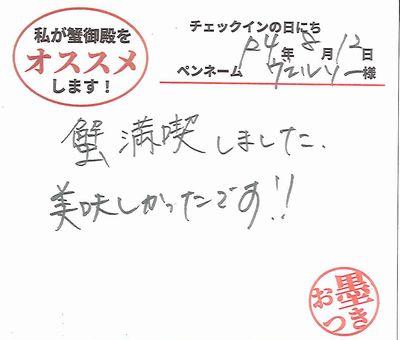 私が蟹御殿を
オススメ
します!
チェックインの日にち
P4年8月12日
ペンネーム ウェルソー様
蟹満喫しました.
美味しかったです!!
お墨つき